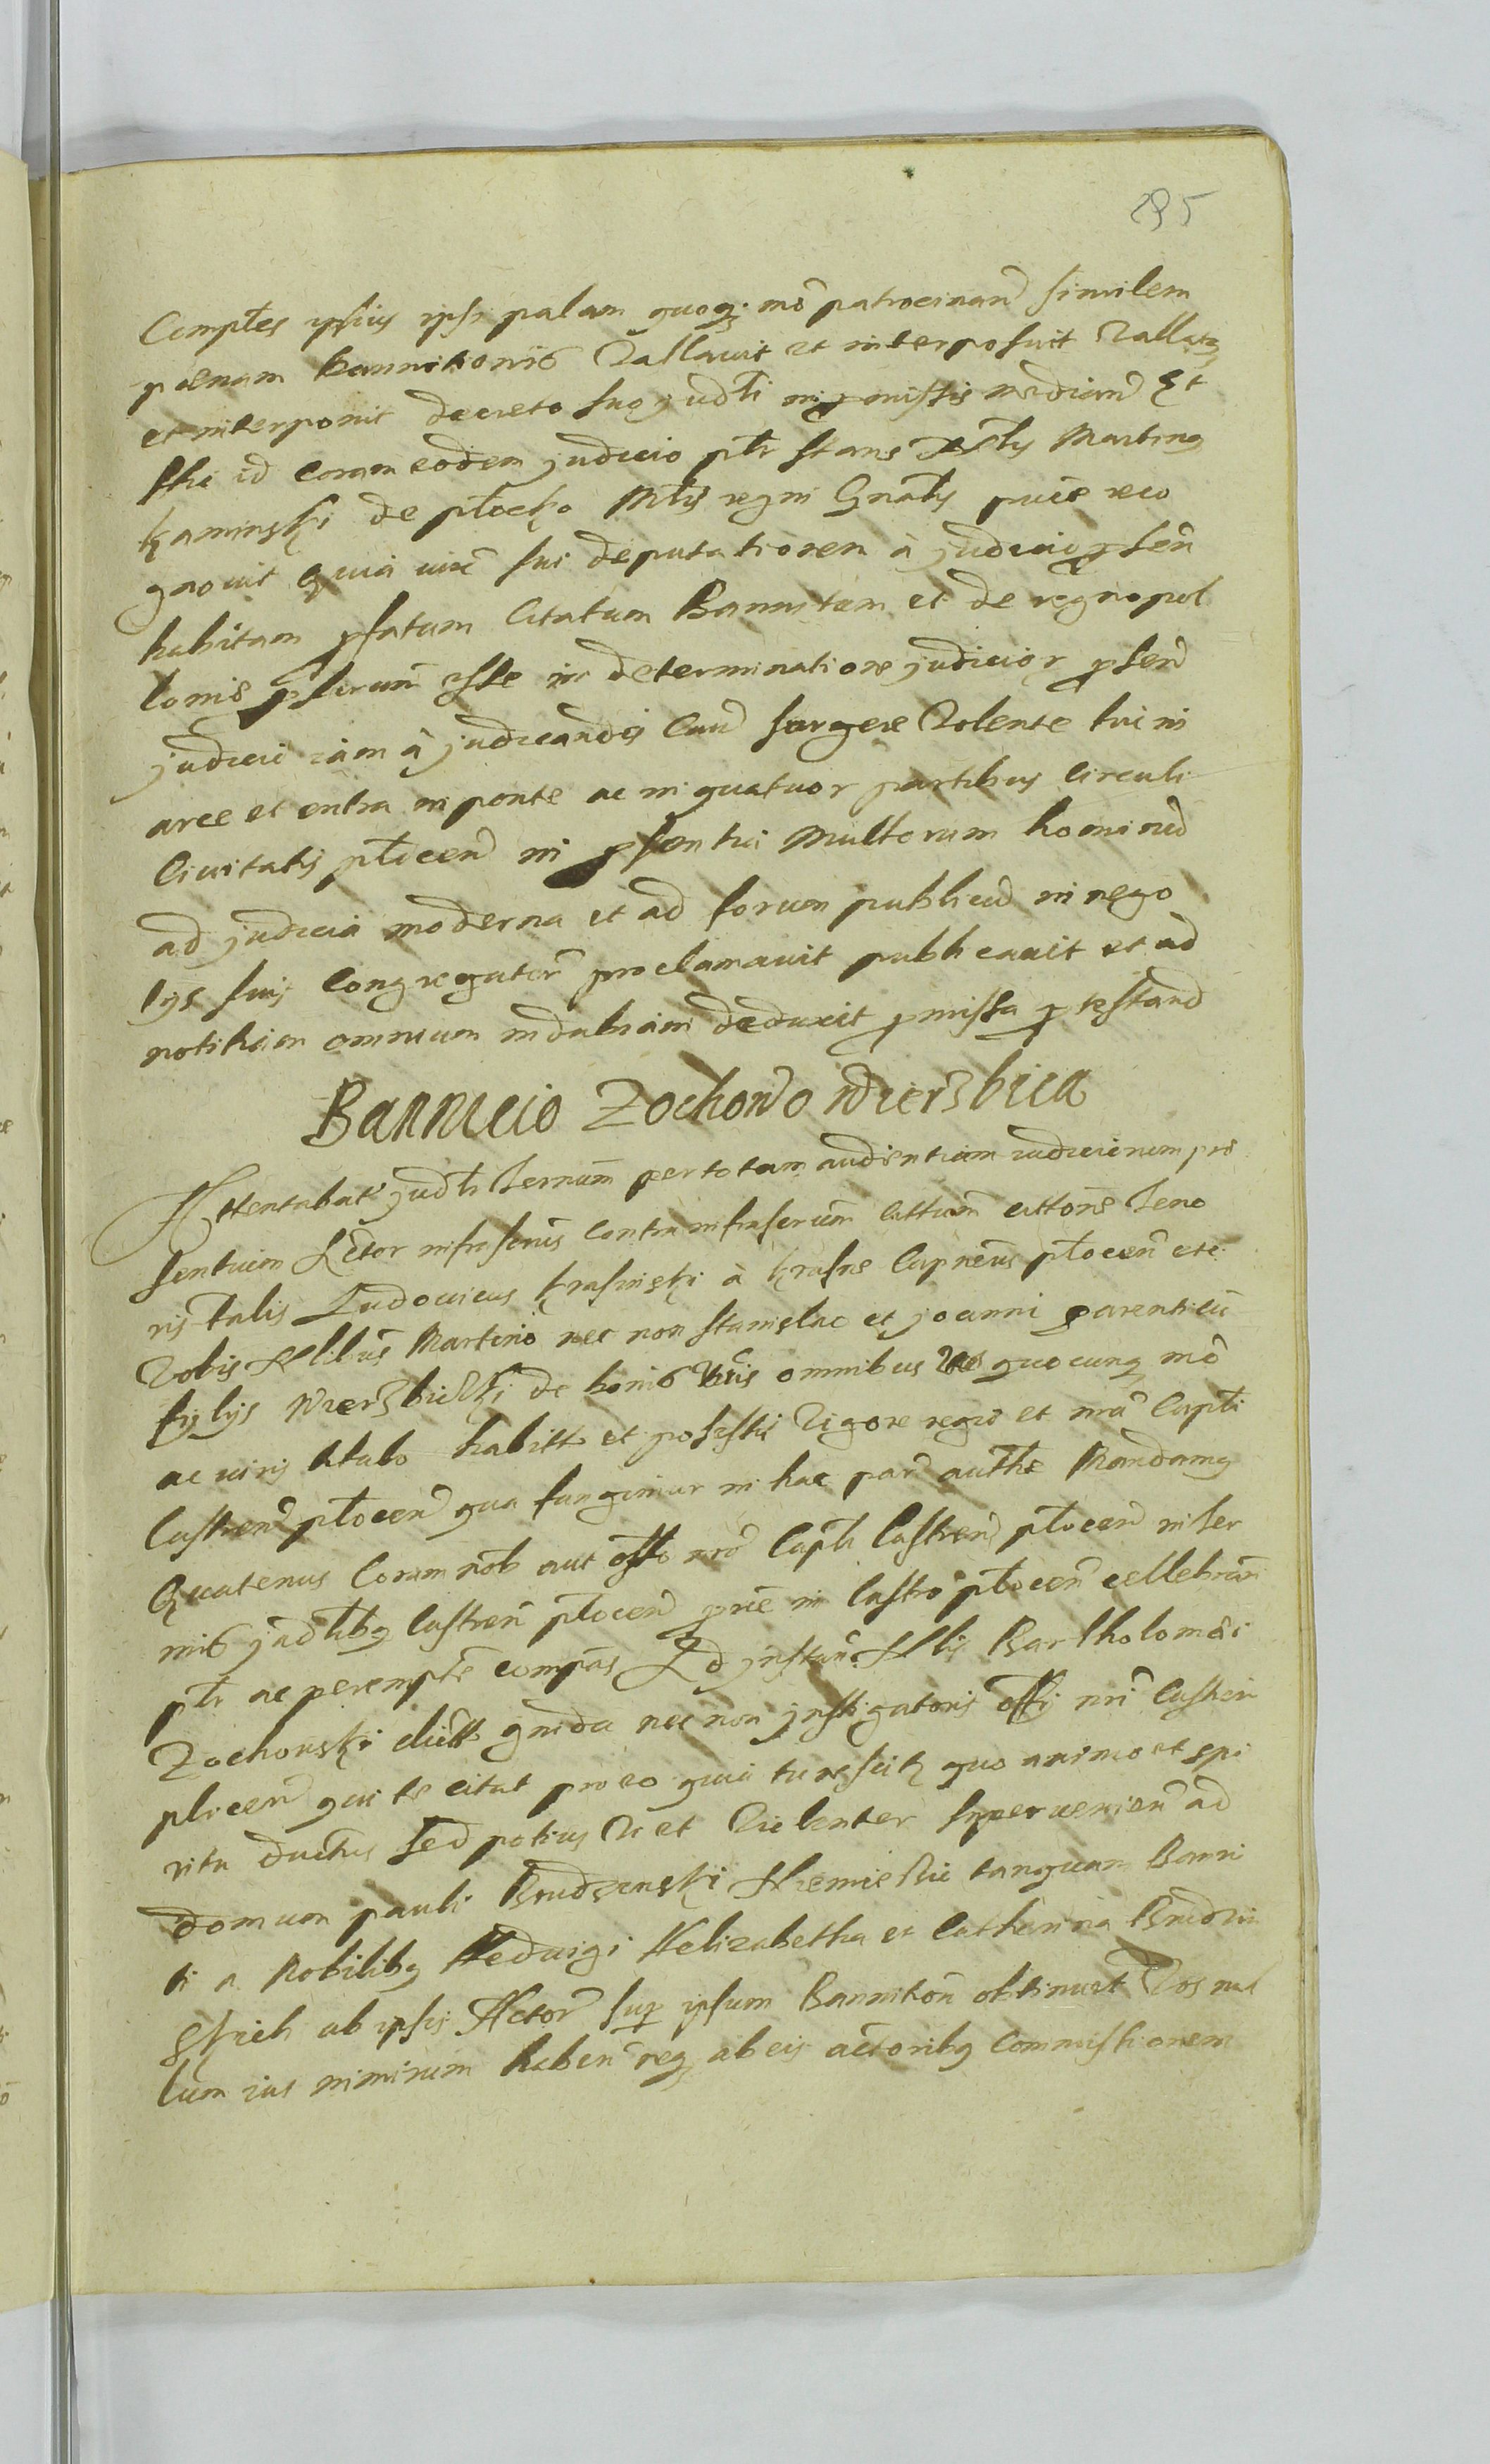 295
Comptes ipsius ipsi palam quoq; mō patrocinand similem
pœnam bannitionis Vallauit et interposuit Vallatq
et interponit decreto suo judli in pmissis mediand Et
ibi id coram eodem judicio ptr stans Martinq
Kaminski de płocko Mtis regni Gnalis reco
gnouit quia iuxˉ sui deputationem à judicio psen
habitam pfatum Citatum Bannitum et de regno pol
loniæ pscrum esse in determinatione judicior psend
judicii iam à judicandis Caus surgere Volente hic in
arce et extra in ponte ac in quatuor partibus Circuli
Ciuitatis płocen in psentia Multorum hominū
ad judicia moderna et ad forum publicū in nego
tys suis congregator proclamauit publicauit et ad
notitiam omnium indubiam deduxit pmissa ptestand
Bannicio Zochowo Wierzbica
Attentabat judlr ternum per totam audientiam iudiciorum pre
sentium Actor infrascrius Contra infrascrium Cittum cittone teno
ris talis Ludouicus Krasinski à Krasne Capneus płocen etc
Vobis Nlibus Martino nec non Stanislao et joanni parenti cū
fylys Wierzbiczki de bonis Vris omnibus quocunq mō
ac iuris titulo habitis et possessis Vigore regio et nrā Capti
Castren płocen qua fungimur in hac par authte Mandamq
Quatenus Coram nob aut offo nrō Captli Castren płocen in ter
mis judlibq castren płocen prie in Castro płocen cellebran
ptr ac perempte compās Ad jnstan Nlis Bartholomæi
Zochowski olim gnida nec non jnstigatoris offi nri Castren
plocen qui te citat pro eo quia tu nescitq quo animo et spi
ritu ductus sed potius Vi et Violenter superuenien ad
domum pauli Brudzenski tanquam Banni
ti a Nobilibq Hedwigi Helizabetha et Catharina Brudzin
skich ab ipsis Actor sup ipsum Bannitōn obtinuit Vos nul
lum ius nimirum haben neq ab eis actoribq Commissionem